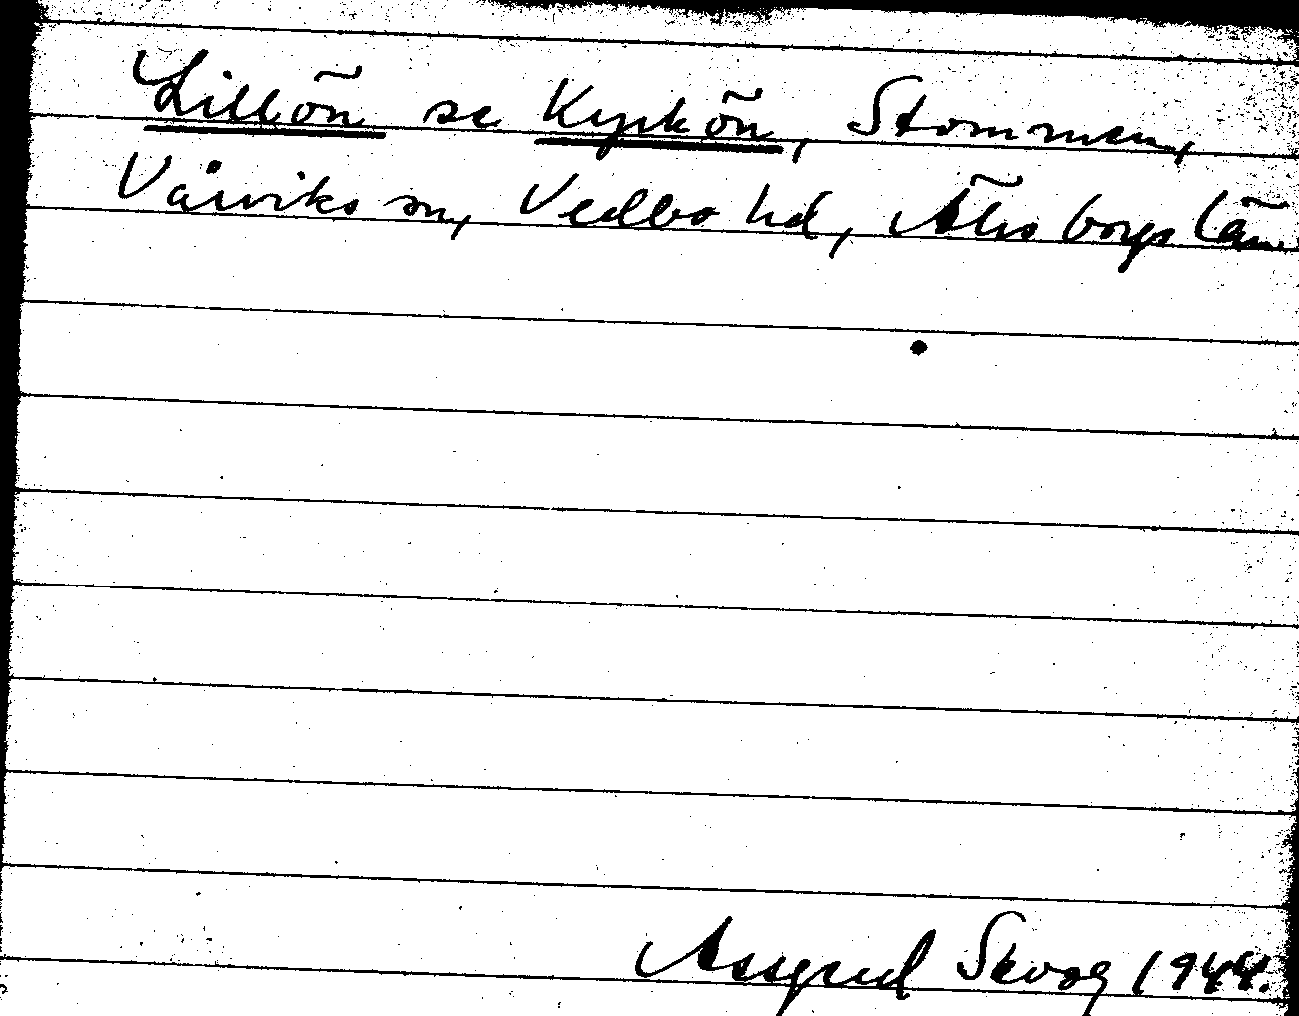 Lillön se Kyrkön, Stommen,
Vårviks sn, Vedbo hd, Älvsborgs län.
Assgrud Skoog 1944.